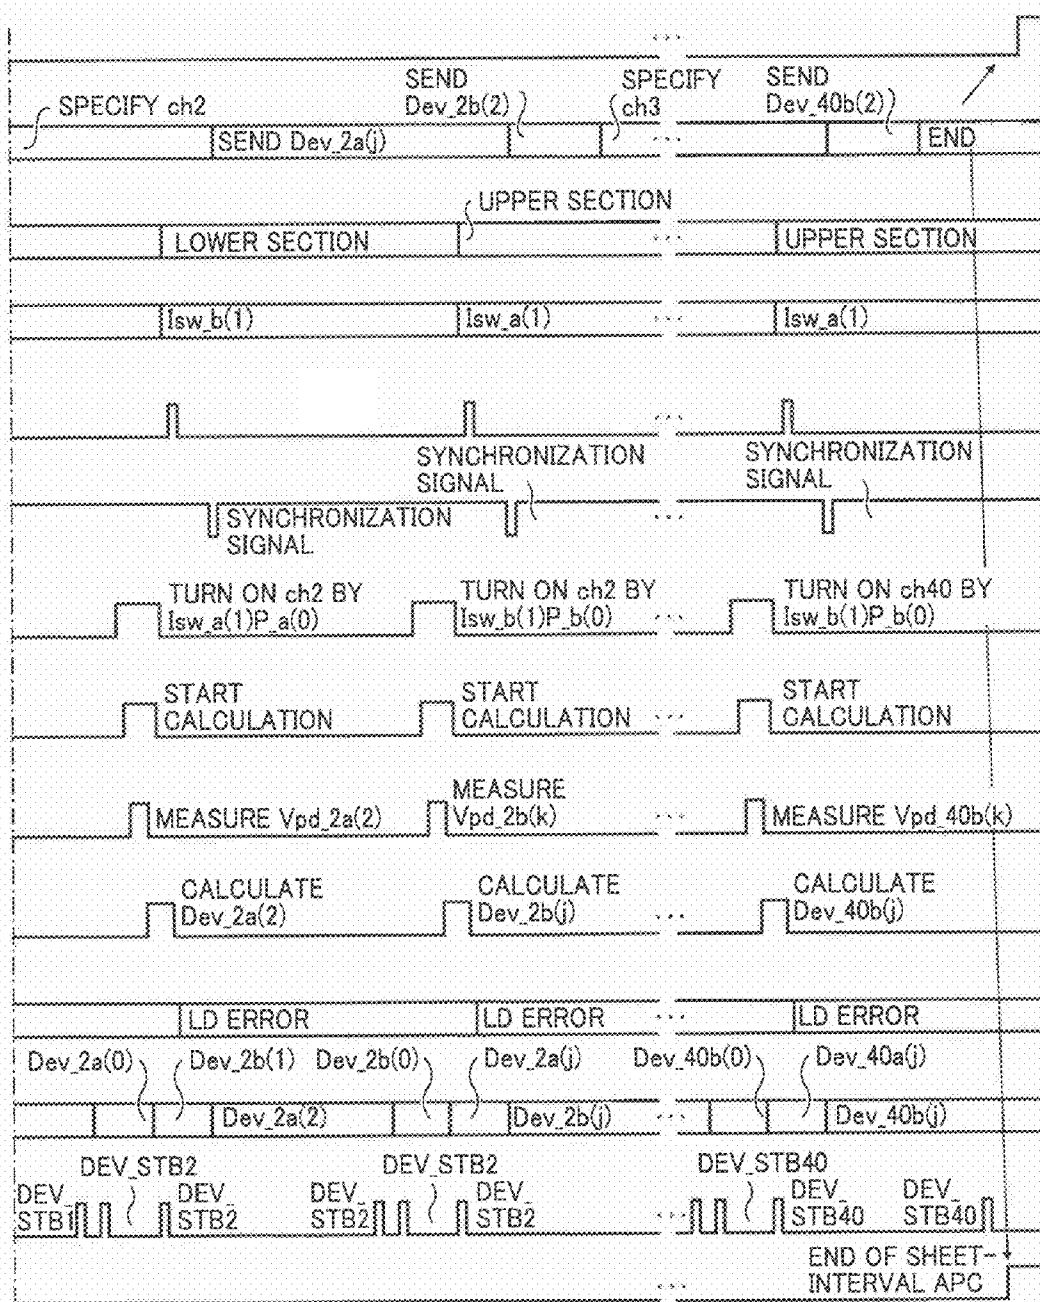 SEND
Dev_2b(2)
SPECIFY
ch3
SEND
Dev_40b(2)
SPECIFY ch2
SEND Dev_2a(j)
END
UPPER SECTION
LOWER SECTION
UPPER SECTION
Isw_b(1)
Isw_a(1)
Isw_a(1)
SYNCHRONIZATION
SIGNAL
SYNCHRONIZATION
SIGNAL
SYNCHRONIZATION
SIGNAL
TURN ON ch2 BY
Isw_a(1)P_a(0)
TURN ON ch2 BY
Isw_b(1)P_b(0)
TURN ON ch40 BY
Isw_b(1)P_b(0)
START
CALCULATION
START
CALCULATION
START
CALCULATION
MEASURE Vpd_2a(2)
MEASURE
Vpd_2b(k)
MEASURE Vpd_40b(k)
CALCULATE
Dev_2a(2)
CALCULATE
Dev_2b(j)
CALCULATE
Dev_40b(j)
LD ERROR
LD ERROR
LD ERROR
Dev_2a(0)
Dev_2b(1)
Dev_2b(0)
Dev_2a(j)
Dev_40b(0)
Dev_40a(j)
Dev_2a(2)
Dev_2b(j)
Dev_40b(j)
DEV_STB2
DEV_STB2
DEV_STB40
DEV_
STB1
DEV_
STB2
DEV_
STB2
DEV_
STB2
DEV_
STB40
DEV_
STB40
END OF SHEET-
INTERVAL APC